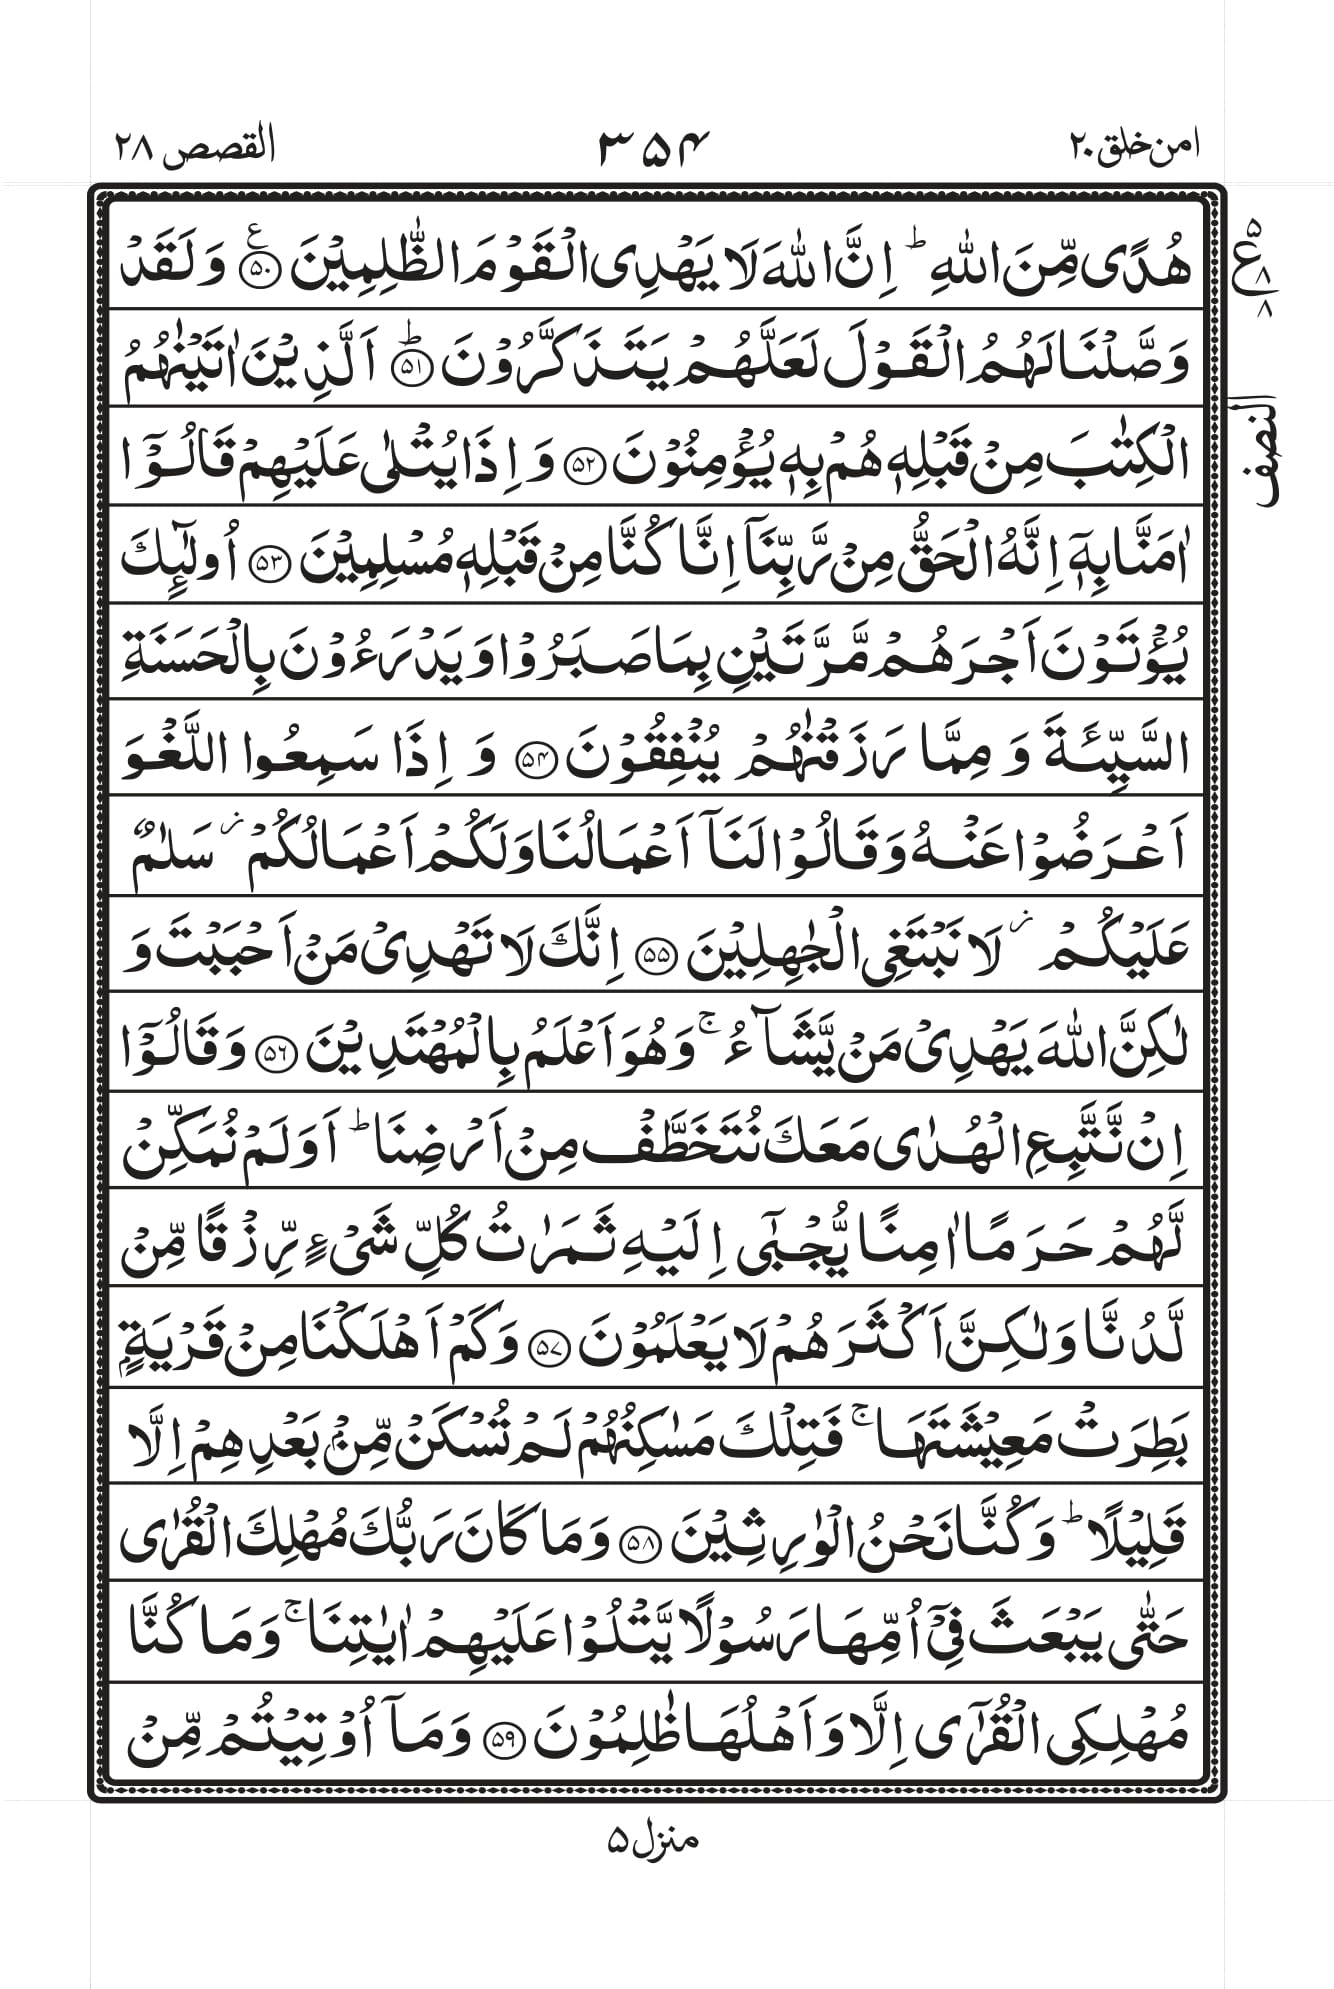 امن خلق ۲۰
۳۵۴
القصص ۲۸
هُدًى مِّنَ اللهِ ؕ اِنَّ اللهَ لَا يَهْدِى الْقَوْمَ الظّٰلِمِيْنَ ﴿۵۰﴾ۧ وَلَقَدْ
۵
ع
۸
۸
وَصَّلْنَا لَهُمُ الْقَوْلَ لَعَلَّهُمْ يَتَذَكَّرُوْنَ ﴿۵۱﴾ؕ اَلَّذِيْنَ اٰتَيْنٰهُمُ
النصف
الْكِتٰبَ مِنْ قَبْلِهٖ هُمْ بِهٖ يُؤْمِنُوْنَ ﴿۵۲﴾ وَاِذَا يُتْلٰى عَلَيْهِمْ قَالُوْٓا
اٰمَنَّا بِهٖٓ اِنَّهُ الْحَقُّ مِنْ رَّبِّنَآ اِنَّا كُنَّا مِنْ قَبْلِهٖ مُسْلِمِيْنَ ﴿۵۳﴾ اُولٰٓئِكَ
يُؤْتَوْنَ اَجْرَهُمْ مَّرَّتَيْنِ بِمَا صَبَرُوْا وَيَدْرَءُوْنَ بِالْحَسَنَةِ
السَّيِّئَةَ وَمِمَّا رَزَقْنٰهُمْ يُنْفِقُوْنَ ﴿۵۴﴾ وَاِذَا سَمِعُوا اللَّغْوَ
اَعْرَضُوْا عَنْهُ وَقَالُوْا لَنَآ اَعْمَالُنَا وَلَكُمْ اَعْمَالُكُمْ ز سَلٰمٌ
عَلَيْكُمْ ز لَا نَبْتَغِى الْجٰهِلِيْنَ ﴿۵۵﴾ اِنَّكَ لَا تَهْدِىْ مَنْ اَحْبَبْتَ وَ
لٰكِنَّ اللهَ يَهْدِىْ مَنْ يَّشَآءُ ۚ وَهُوَ اَعْلَمُ بِالْمُهْتَدِيْنَ ﴿۵۶﴾ وَقَالُوْٓا
اِنْ نَّتَّبِعِ الْهُدٰى مَعَكَ نُتَخَطَّفْ مِنْ اَرْضِنَا ؕ اَوَلَمْ نُمَكِّنْ
لَّهُمْ حَرَمًا اٰمِنًا يُّجْبٰٓى اِلَيْهِ ثَمَرٰتُ كُلِّ شَىْءٍ رِّزْقًا مِّنْ
لَّدُنَّا وَلٰكِنَّ اَكْثَرَهُمْ لَا يَعْلَمُوْنَ ﴿۵۷﴾ وَكَمْ اَهْلَكْنَا مِنْ قَرْيَةٍۭ
بَطِرَتْ مَعِيْشَتَهَا ۚ فَتِلْكَ مَسٰكِنُهُمْ لَمْ تُسْكَنْ مِّنْۢ بَعْدِهِمْ اِلَّا
قَلِيْلًا ؕ وَكُنَّا نَحْنُ الْوٰرِثِيْنَ ﴿۵۸﴾ وَمَا كَانَ رَبُّكَ مُهْلِكَ الْقُرٰى
حَتّٰى يَبْعَثَ فِىْٓ اُمِّهَا رَسُوْلًا يَّتْلُوْا عَلَيْهِمْ اٰيٰتِنَا ۚ وَمَا كُنَّا
مُهْلِكِى الْقُرٰٓى اِلَّا وَاَهْلُهَا ظٰلِمُوْنَ ﴿۵۹﴾ وَمَآ اُوْتِيْتُمْ مِّنْ
منزل ۵